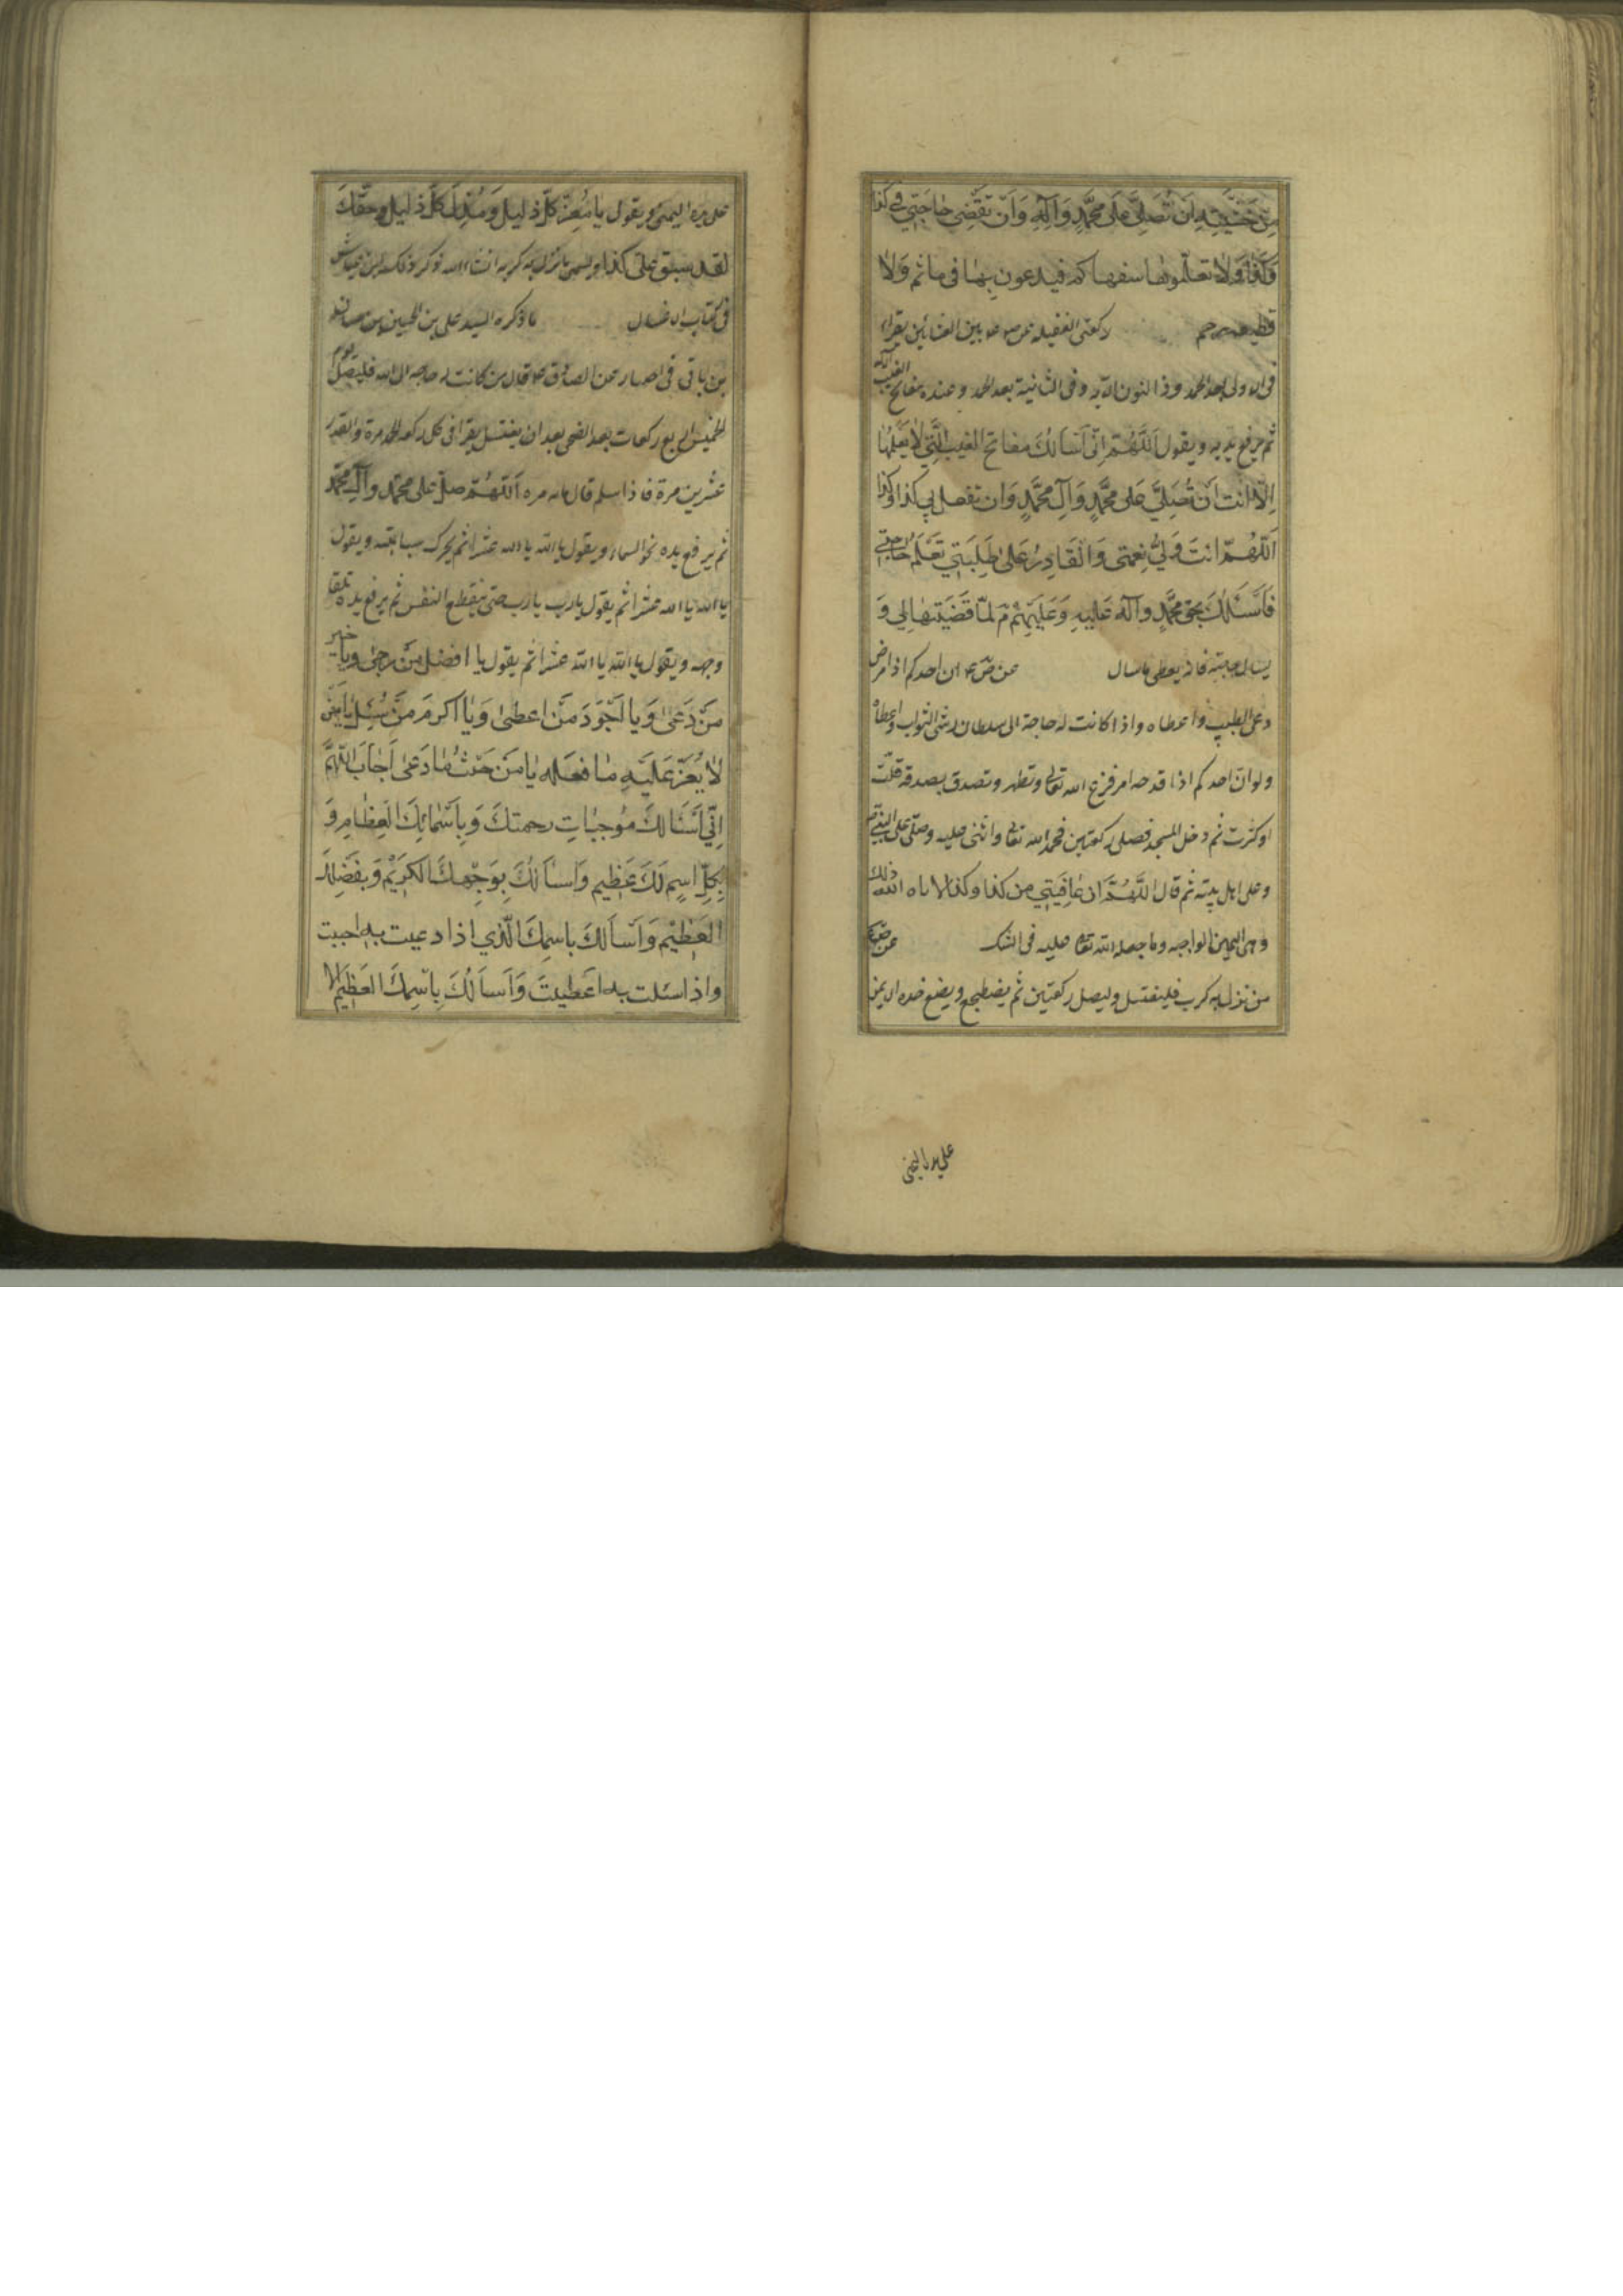 مِنْ خَشْيَتِهِ اَنْ تُصَلِّيَ عَلىٰ مُحَمَّدٍ وَآلِهِ وَاَنْ تَقْضِيَ حٰاجَتِي فى كذا
وَكَذا وَلاٰ تعلّموها سفهاكم فيدعون بِهٰا فى ماثم وَلاٰ
قطيعة رحم ركعتى الغفيله عن ص ع ما بين العشائين يقراء
فى الاولى بعد الحمد وذا النون الآيه وفى الثانية بعد الحمد وعنده مفاتح الغيب الآيه
ثم يرفع يديه ويقول اَللّٰهُمَّ اِنّى اَسْاَلُكَ مفاتح الغيب الَّتِي لاٰ يَعْلَمُهٰا
اِلاّٰ اَنت اَن تُصَلِّيَ عَلىٰ مُحَمَّدٍ وَآلِ مُحَمَّدٍ وَان تفعل بي كذا وكذا
اَللّٰهُمّ اَنتَ وَلِيُّ نِعْمَتى وَالْقَادِرُ عَلىٰ طَلِبَتِي تَعْلَمُ حٰاجَتى
فَاَسْئَلُكَ بِحَقّ مُحَمَّدٍ وآله عَلَيهِ وَعَلَيْهِمْ لَمّا قَضَيْتَهٰا لِي وَ
يسال حاجته فانه يعطى ما سال عن ص ع ان احدكم اذا مرض
دعى الطبيب واعطاه واذا كانت له حاجة الى سلطان رشى البواب واعطاه
ولو انّ احدكم اذا فدحه امر فزع الى الله تعالى وتطهر وتصدق بصدقة قلّت
او كثرت ثم دخل المسجد فصلى ركعتين فحمد الله تعالى واثنى عليه وصلّى على النبيّ
وعلى اهل بيته ثم قال اَللّٰهُمَّ ان عٰافَيْتَنِي من كذا وكذا لاتاه الله ذلك
وهى اليمين الواجبه وما جعل الله تعالى عليه فى الشكر عن ص ع
من نزل به كرب فليغتسل وليصل ركعتين ثم يضطجع ويضع خده الايمن
على يده اليمنى
على يده اليمنى ويقول يا مُعِزَّ كُلّ ذليل وَمُذِلَّ كُلّ
لقد شق علىّ كذا ويسمى ما نزل به يكشف كربه انشاء الله
فى كتاب الاغسال ما ذكره السيد على بن الحسين بن حسان
بن باقى فى اختياره عن الصادق ع قال من كانت له حاجه الى الله فليصل يوم
الخميس اربع ركعات بعد الضحى بعد ان يغتسل يقرا فى كل ركعه الحمد مرة والقدر
عشرين مرة فاذا سلم قال مائه مره اَللّٰهُمَّ صلّ على محمّد وآلِ محمّد
ثم يرفع يده نحو السماء ويقول يا الله يا الله عشرا ثم يحرك سبابتيه ويقول
يا الله يا الله عشرا ثم يقول يا رب يا رب حتى ينقطع النفس ثم يرفع يده تلقاء
وجهه ويقول يا الله يا الله عشرا ثم يقول يا افضل من رجى ويا خير
مَنْ دَعىٰ وَيا اَجْوَدَ مَنْ اعطىٰ وَيٰا اكرمَ مَنْ سُئِلَ يٰا مَنْ
لاٰ يَعُزّ عَلَيْهِ مٰا فعَله يٰا مَن حَيْثُ مٰا دُعى اَجٰابَ اَللّٰهُمَّ
اِنِّي اَسْئَالُكَ مُوجبٰاتِ رحمتكَ وَبِاَسْمٰائِكَ الْعِظٰامِ وَ
بِكُلِّ اسمٍ لَكَ عَظِيم وَاسْاَلُكَ بِوَجْهِكَ الكَرِيْم وَبِفَضْلِكَ
العَظِيْم وَاَسْاَلُكَ باسمِكَ الَّذي اذا دعيت به اجبت
واذا سئلت به اعَطيتَ وَاَسْاَلُكَ بِاسْمِكَ العَظِيم لا